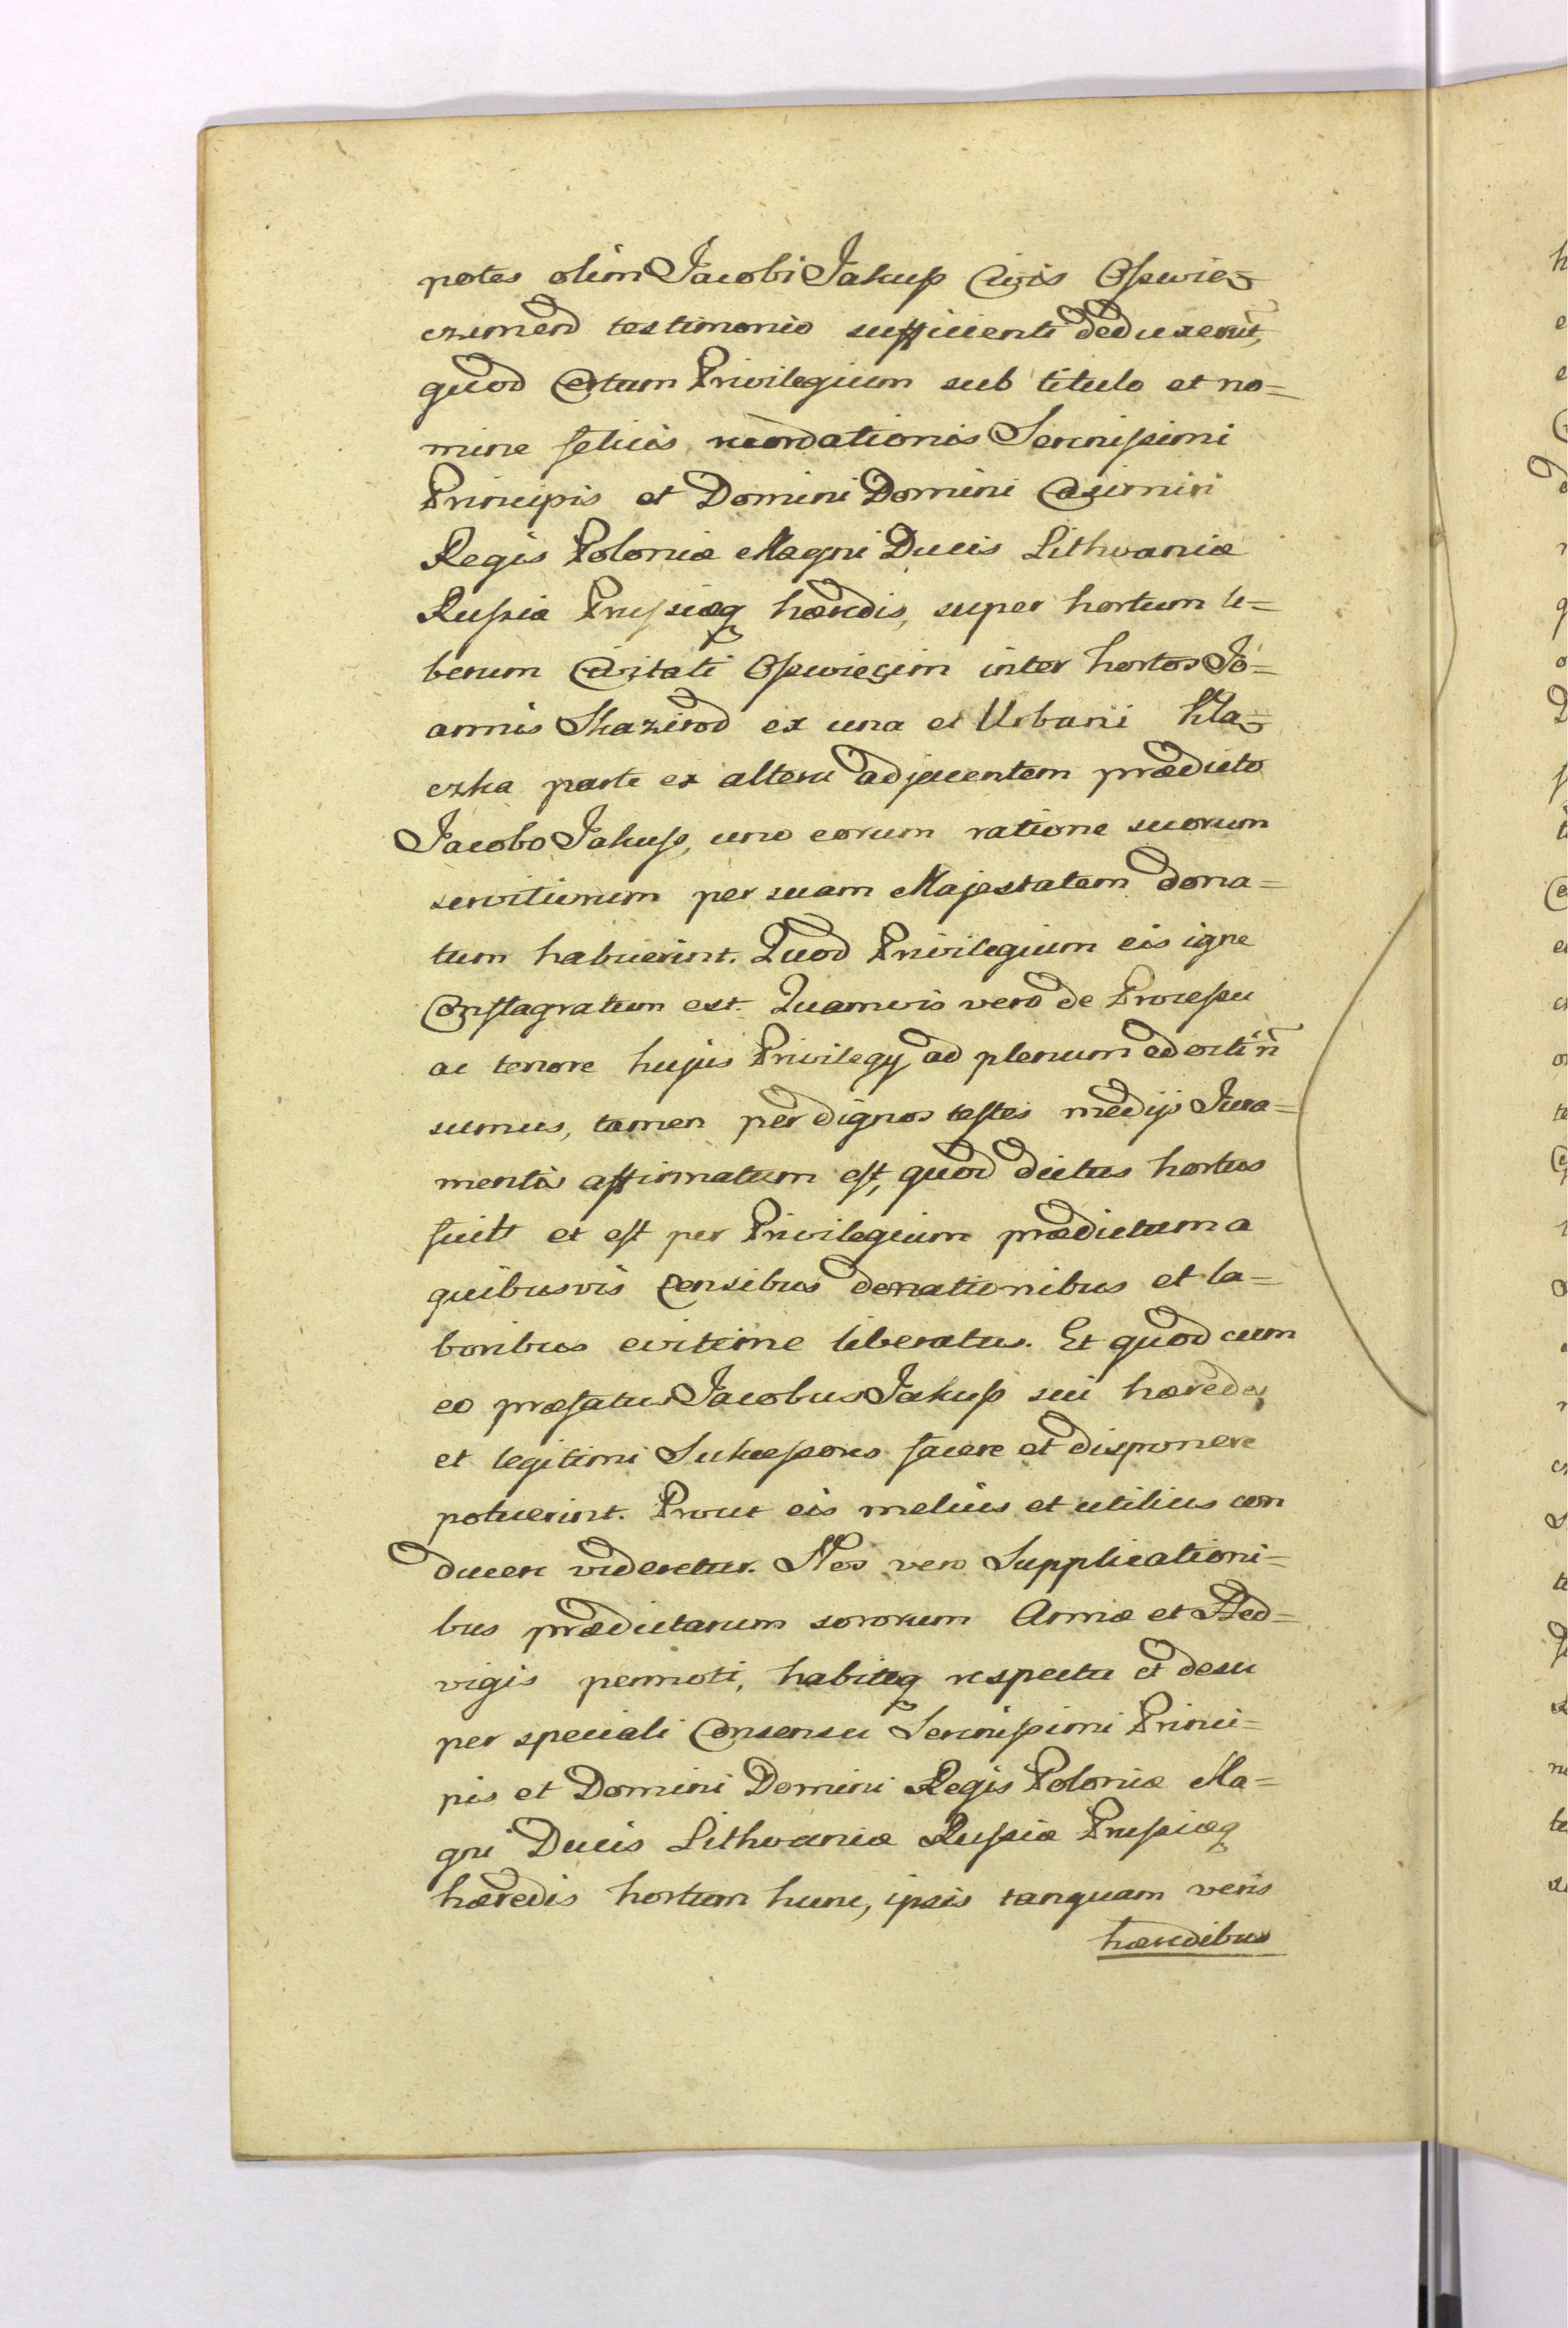 potes olim Jacobi Jakuß Civis Oßwie=
cziment testimonio sufficienti deduxerūt,
quod Certum Privilegium sub titulo et no=
mine felicis recordationis Serenißimi
Principis et Domini Domini Casimiri
Regis Poloniæ Magni Ducis Lithvaniæ
Rußiæ Prußiæq hæredis, super hortum li=
berum Civitati Oßwięcim inter hortos Jo=
annis Skazirod ex una et Urbani Kla=
czka parte ex altera adjacentem prædicto
Jacobo Jakuß, uno eorum ratione suorum
servitiorum per suam Majestatem dona=
tum habuerint. Quod Privilegium eis igne
Conflagratum est. Quamvis vero de Proceßu
ac tenore hujus Privilegy ad plenum edocti ñ
sumus, tamen per dignos testes medijs Jura=
mentis affirmatum est, quod dictus hortus
fuit et est per Privilegium prædictum a
quibusvis Censibus donationibus et la=
boribus eviterne liberatus. Et quod cum
eo præfatus Jacobus Jakuß sui hæredes
et legitimi Succeßores facere et disponere
potuerint. Prout eis melius et utilius con
ducere videretur. Nos vero Supplicationi=
bus prædictarum sororum Annæ et Hed=
vigis permoti, habitoq respectu et desu
per speciali Consensu Serenißimi Princi=
pis et Domini Domini Regis Poloniæ Ma=
gni Ducis Lithvaniæ Rußiæ Prußiæq
hæredis hortum hunc, ipsis tanquam veris
hæredibus